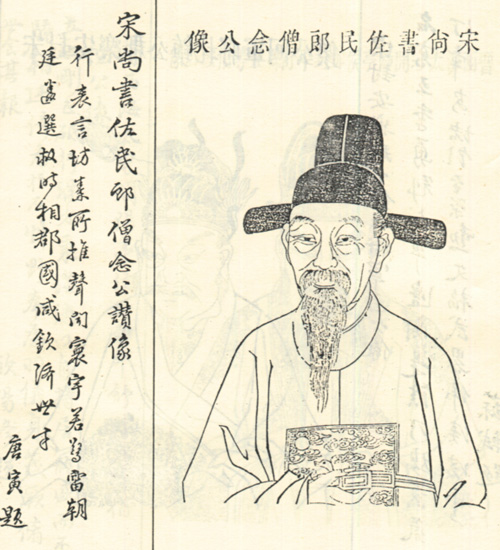 宋尚書佐民郎僧念公像
宋尚書佐民郎僧念公讚像
行表言坊素所推聲聞寰宇若雷朝
廷婁選救時相郡國咸欽濟世才
唐寅題